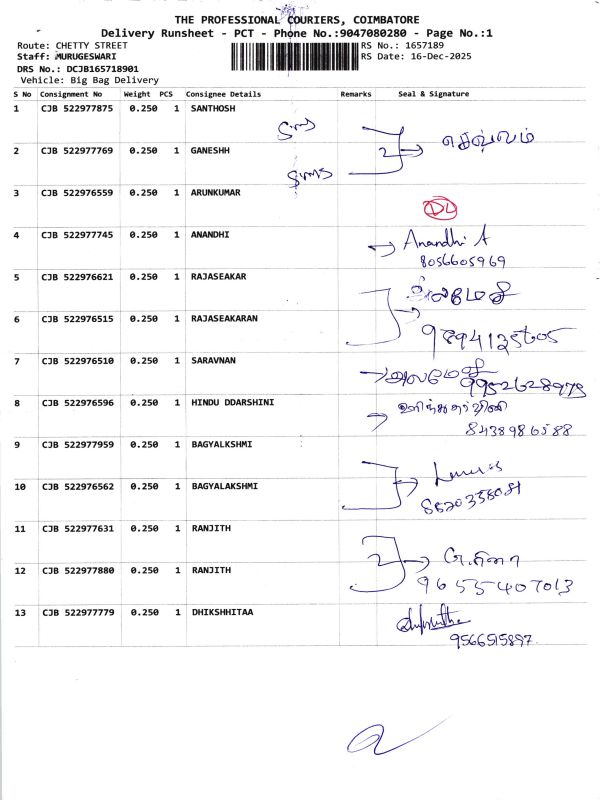 THE PROFESSIONAL COURIERS, COIMBATORE
Delivery Runsheet - PCT - Phone No.:9047080280 - Page No.:1
Route: CHETTY STREET
RS No.: 1657189
Staff: MURUGESWARI
RS Date: 16-Dec-2025
DRS No.: DCJB165718901
Vehicle: Big Bag Delivery
S No Consignment No Weight PCS Consignee Details Remarks Seal & Signature
1 CJB 522977875 0.250 1 SANTHOSH
செல்லம்
2 CJB 522977769 0.250 1 GANESHH 2
3 CJB 522976559 0.250 1 ARUNKUMAR
DL
4 CJB 522977745 0.250 1 ANANDHI Anandhi A
8056605969
5 CJB 522976621 0.250 1 RAJASEAKAR
6 CJB 522976515 0.250 1 RAJASEAKARAN
9894135605
7 CJB 522976510 0.250 1 SARAVNAN
9952628975
8 CJB 522976596 0.250 1 HINDU DDARSHINI
8438986588
9 CJB 522977959 0.250 1 BAGYALKSHMI
10 CJB 522976562 0.250 1 BAGYALAKSHMI
11 CJB 522977631 0.250 1 RANJITH
2
12 CJB 522977880 0.250 1 RANJITH
9655407013
13 CJB 522977779 0.250 1 DHIKSHHITAA
9566515897